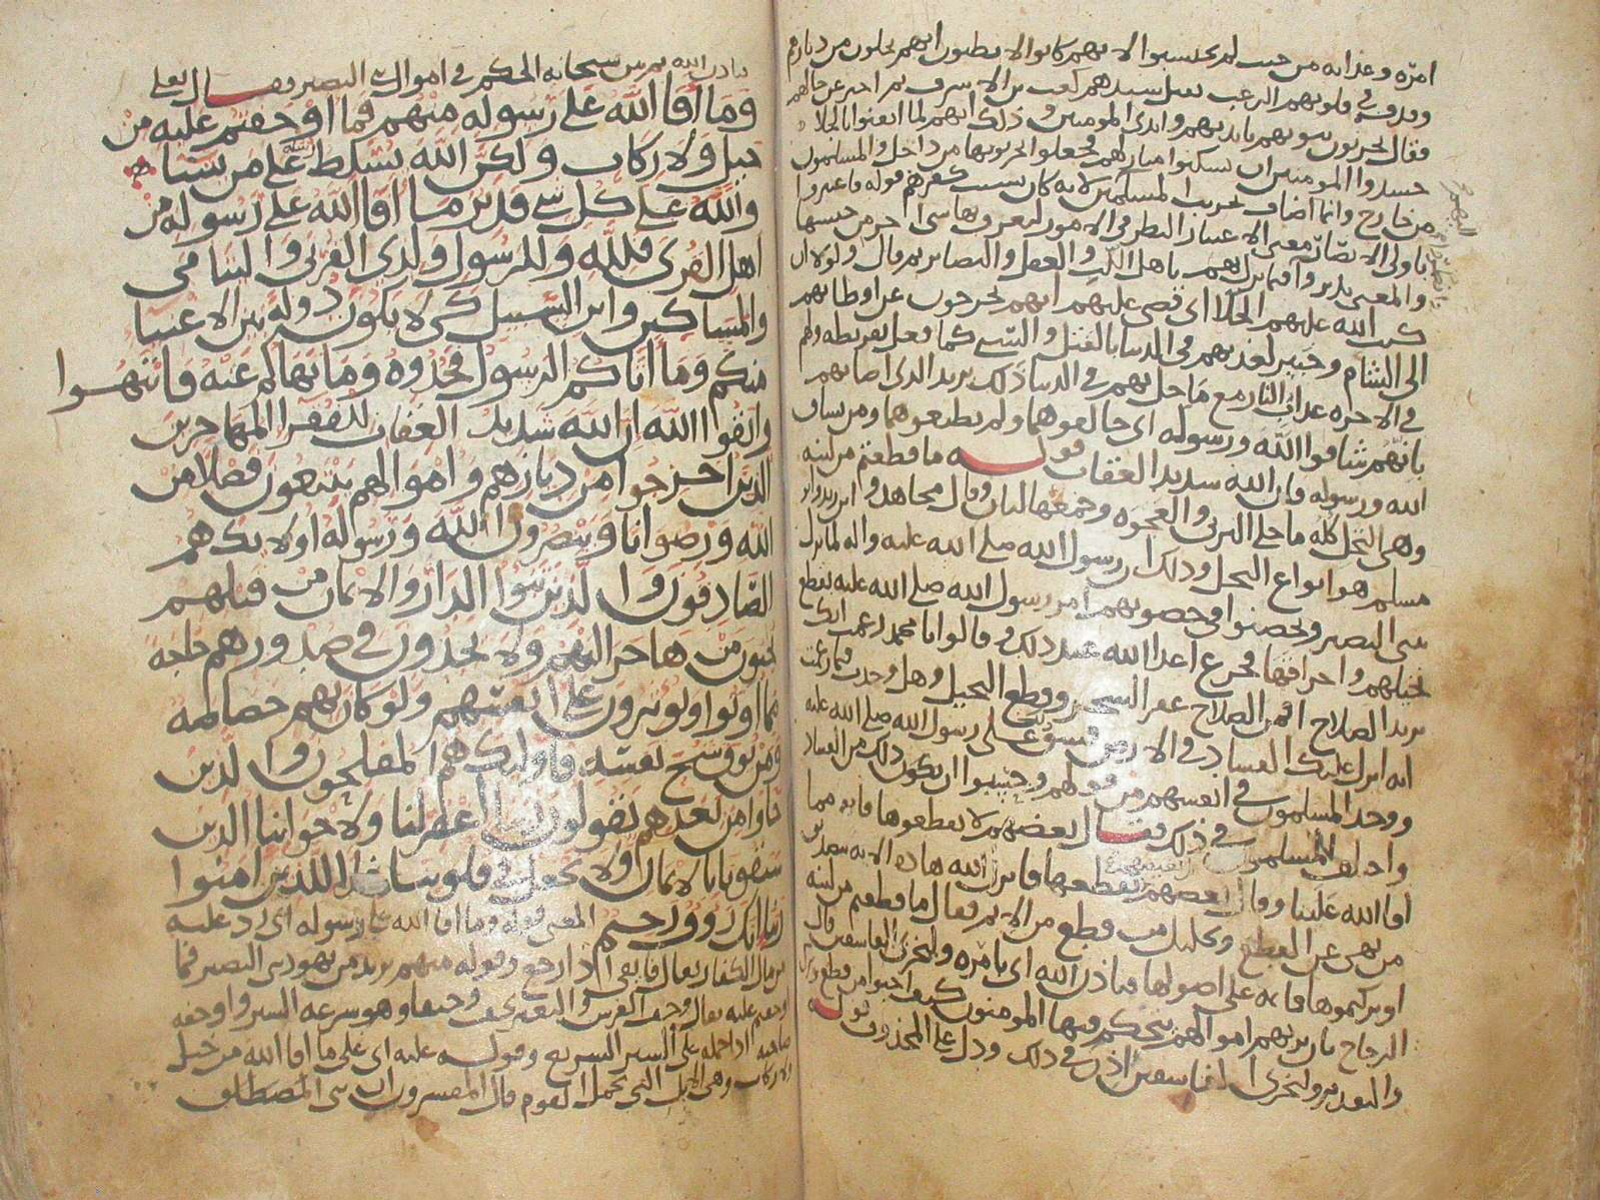 امره وعذابه من حيث لم يحتسبوا لانهم كانوا لا يظنون انهم يخلون من ديارهم
وقذف في قلوبهم الرعب بقتل سيدهم كعب بن الاشرف ثم اخبر عن حالهم
فقال يخربون بيوتهم بايديهم وايدي المومنين وذلك انهم لما ايقنوا بالجلا
حسدوا المومنين ان يسكنوا منازلهم فجعلوا يخربونها من داخل والمسلمون
من خارج وانما اضاف تخريب المسلمين لانه كان بسبب كفرهم قوله فاعتبروا
ياولي الابصار معنى الاعتبار النظر في الامور ليعرف بها شي اخر من جنسها
والمعنى تدبروا فيما نزل بهم يا هل اللب والعقل والبصاير ثم قال ولولا ان
كتب الله عليهم الجلا اي قضى عليهم انهم يخرجون عن اوطانهم
الى الشام وخيبر لعذبهم في الدنيا بالقتل والسبي كما فعل بقريظة ولهم
في الاخره عذاب النار مع ما حل بهم في الدنيا ذلك يريد الذي اصابهم
بانهم شاقوا الله ورسوله اي خالفوهما ولم يطيعوهما ومن يشاق
الله ورسوله فان الله شديد العقاب قوله ما قطعتم من لينه
وهي النخل كله ما خلا البرني والعجوه وجمعها ليان وقال مجاهد و
مسلم هو انواع النخل وذلك ان رسول الله صلى الله عليه واله لما نزل
ببني النضير وتحصنوا في حصونهم امر رسول الله صلى الله عليه بقطع
نخيلهم واحراقها فجزع اعدا الله عند ذلك فقالوا يا محمد زعمت انك
تريد الصلاح افمن الصلاح عقر الشجر وقطع النخيل وهل وجدت فيما زعمت
انه انزل عليك الفساد في الارض فشق ذلك على رسول الله صلى الله عليه
ووجد المسلمون في انفسهم من قولهم وخشيوا ان يكون ذلك من الفساد
واختلف المسلمون في ذلك فقال بعضهم لا تقطعوها فانه مما
افا الله علينا وقال بعضهم نقطعها فانزل الله هاذه الايه بتصديق
من نهى عن القطع وتحليل من قطع من الاثم فقال ما قطعتم من لينه
او تركتموها قايمه على اصولها فباذن الله اي بامره وليخزي الفاسقين قال
الزجاج بان يريهم اموالهم يتحكم فيها المومنون كيف احبوا من قطع وترك
والتقدير وليخزي الفاسقين اذن في ذلك ودل على المحذوف قوله
باذن الله ثم بين سبحانه الحكم في اموال بني النضير فقال تعلى
وما افا الله على رسوله منهم فما اوجفتم عليه من
خيل ولا ركاب ولكن الله يسلط رسله على من يشا
والله على كل شي قدير ما افا الله على رسوله من
اهل القرى فلله وللرسول ولذي القربى واليتامى
والمساكين وابن السبيل كي لا يكون دولة بين الاغنيا
منكم وما اتاكم الرسول فخذوه وما نهاكم عنه فانتهوا
واتقوا الله ان الله شديد العقاب للفقرا المهاجرين
الذين اخرجوا من ديارهم واموالهم يبتغون فضلا من
الله ورضوانا وينصرون الله ورسوله اولايك هم
الصادقون والذين تبوا الدار والايمان من قبلهم
يحبون من هاجر اليهم ولا يجدون في صدورهم حاجة
مما اوتوا ويوثرون على انفسهم ولو كان بهم خصاصه
ومن يوق شح نفسه فاولايك هم المفلحون والذين
جاوا من بعدهم يقولون ربنا اغفر لنا ولاخواننا الذين
سبقونا بالايمان ولا تجعل في قلوبنا غلا للذين امنوا
ربنا انك رووف رحيم المعنى قوله وما افا الله على رسوله اي رد عليه
من مال الكفار يقال فا يفي اذا رجع وقوله منهم يريد من يهود بني النضير فما
اوجفتم عليه يقال وجف الفرس والبعير يجف وجيفا وهو سرعة السير واوجفه
صاحبه اذا حمله على السير السريع وقوله عليه اي على ما افا الله من خيل
ولا ركاب وهي الابل التي تحمل القوم قال المفسرون ان بني المصطلق